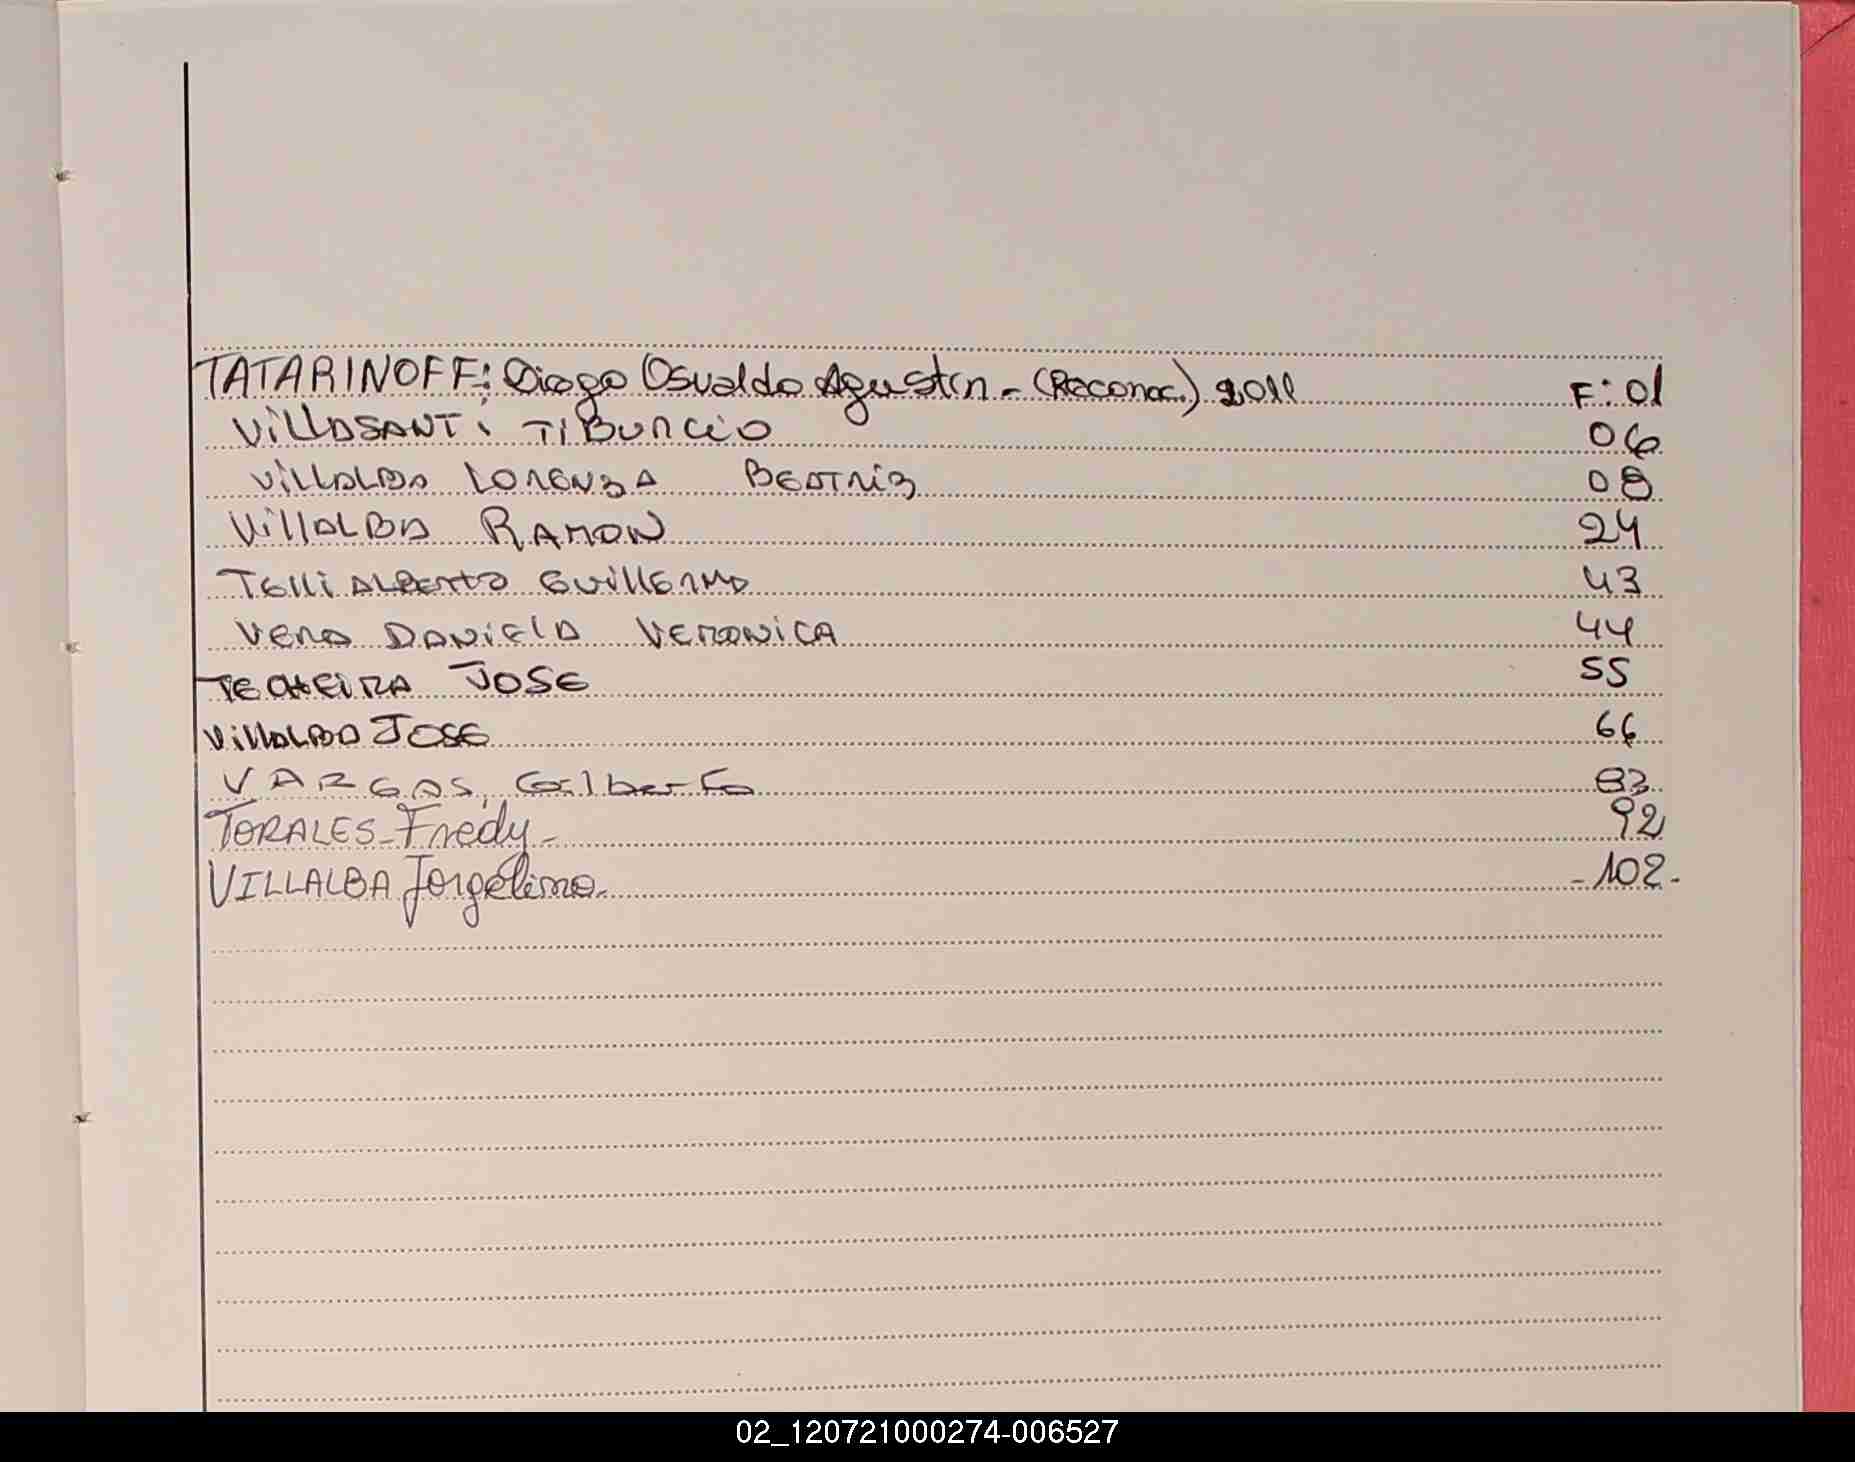 TATARINOFF: Diego Osvaldo Agustin - (Reconoc.) 2011 F: 01
VillASANTi TiBURCiO 06
VillALBA LORENZA BEATRiz 08
VillALBA RAMON 24
TElli ALBERTO GUillERMO 43
VERA DANiElA VERONiCA 44
TECHEiRA JOSE 55
VillALBA JOSE 66
VARGAS, Gilberto 83
TORALES - Fredy - 92
VILLALBA Jorgelina - - 102 -
02_120721000274-006527